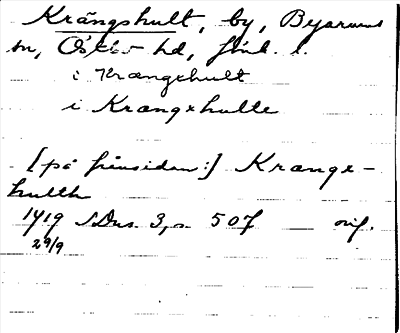 Krängshult, by, Byarums
sn, Östbo hd, Jönk. l.
i Krængxhult
i Krængxhulte
[på frånsidan:] Krængx-
hulth
1419 SDns. 3, s. 507 orig.
29/9